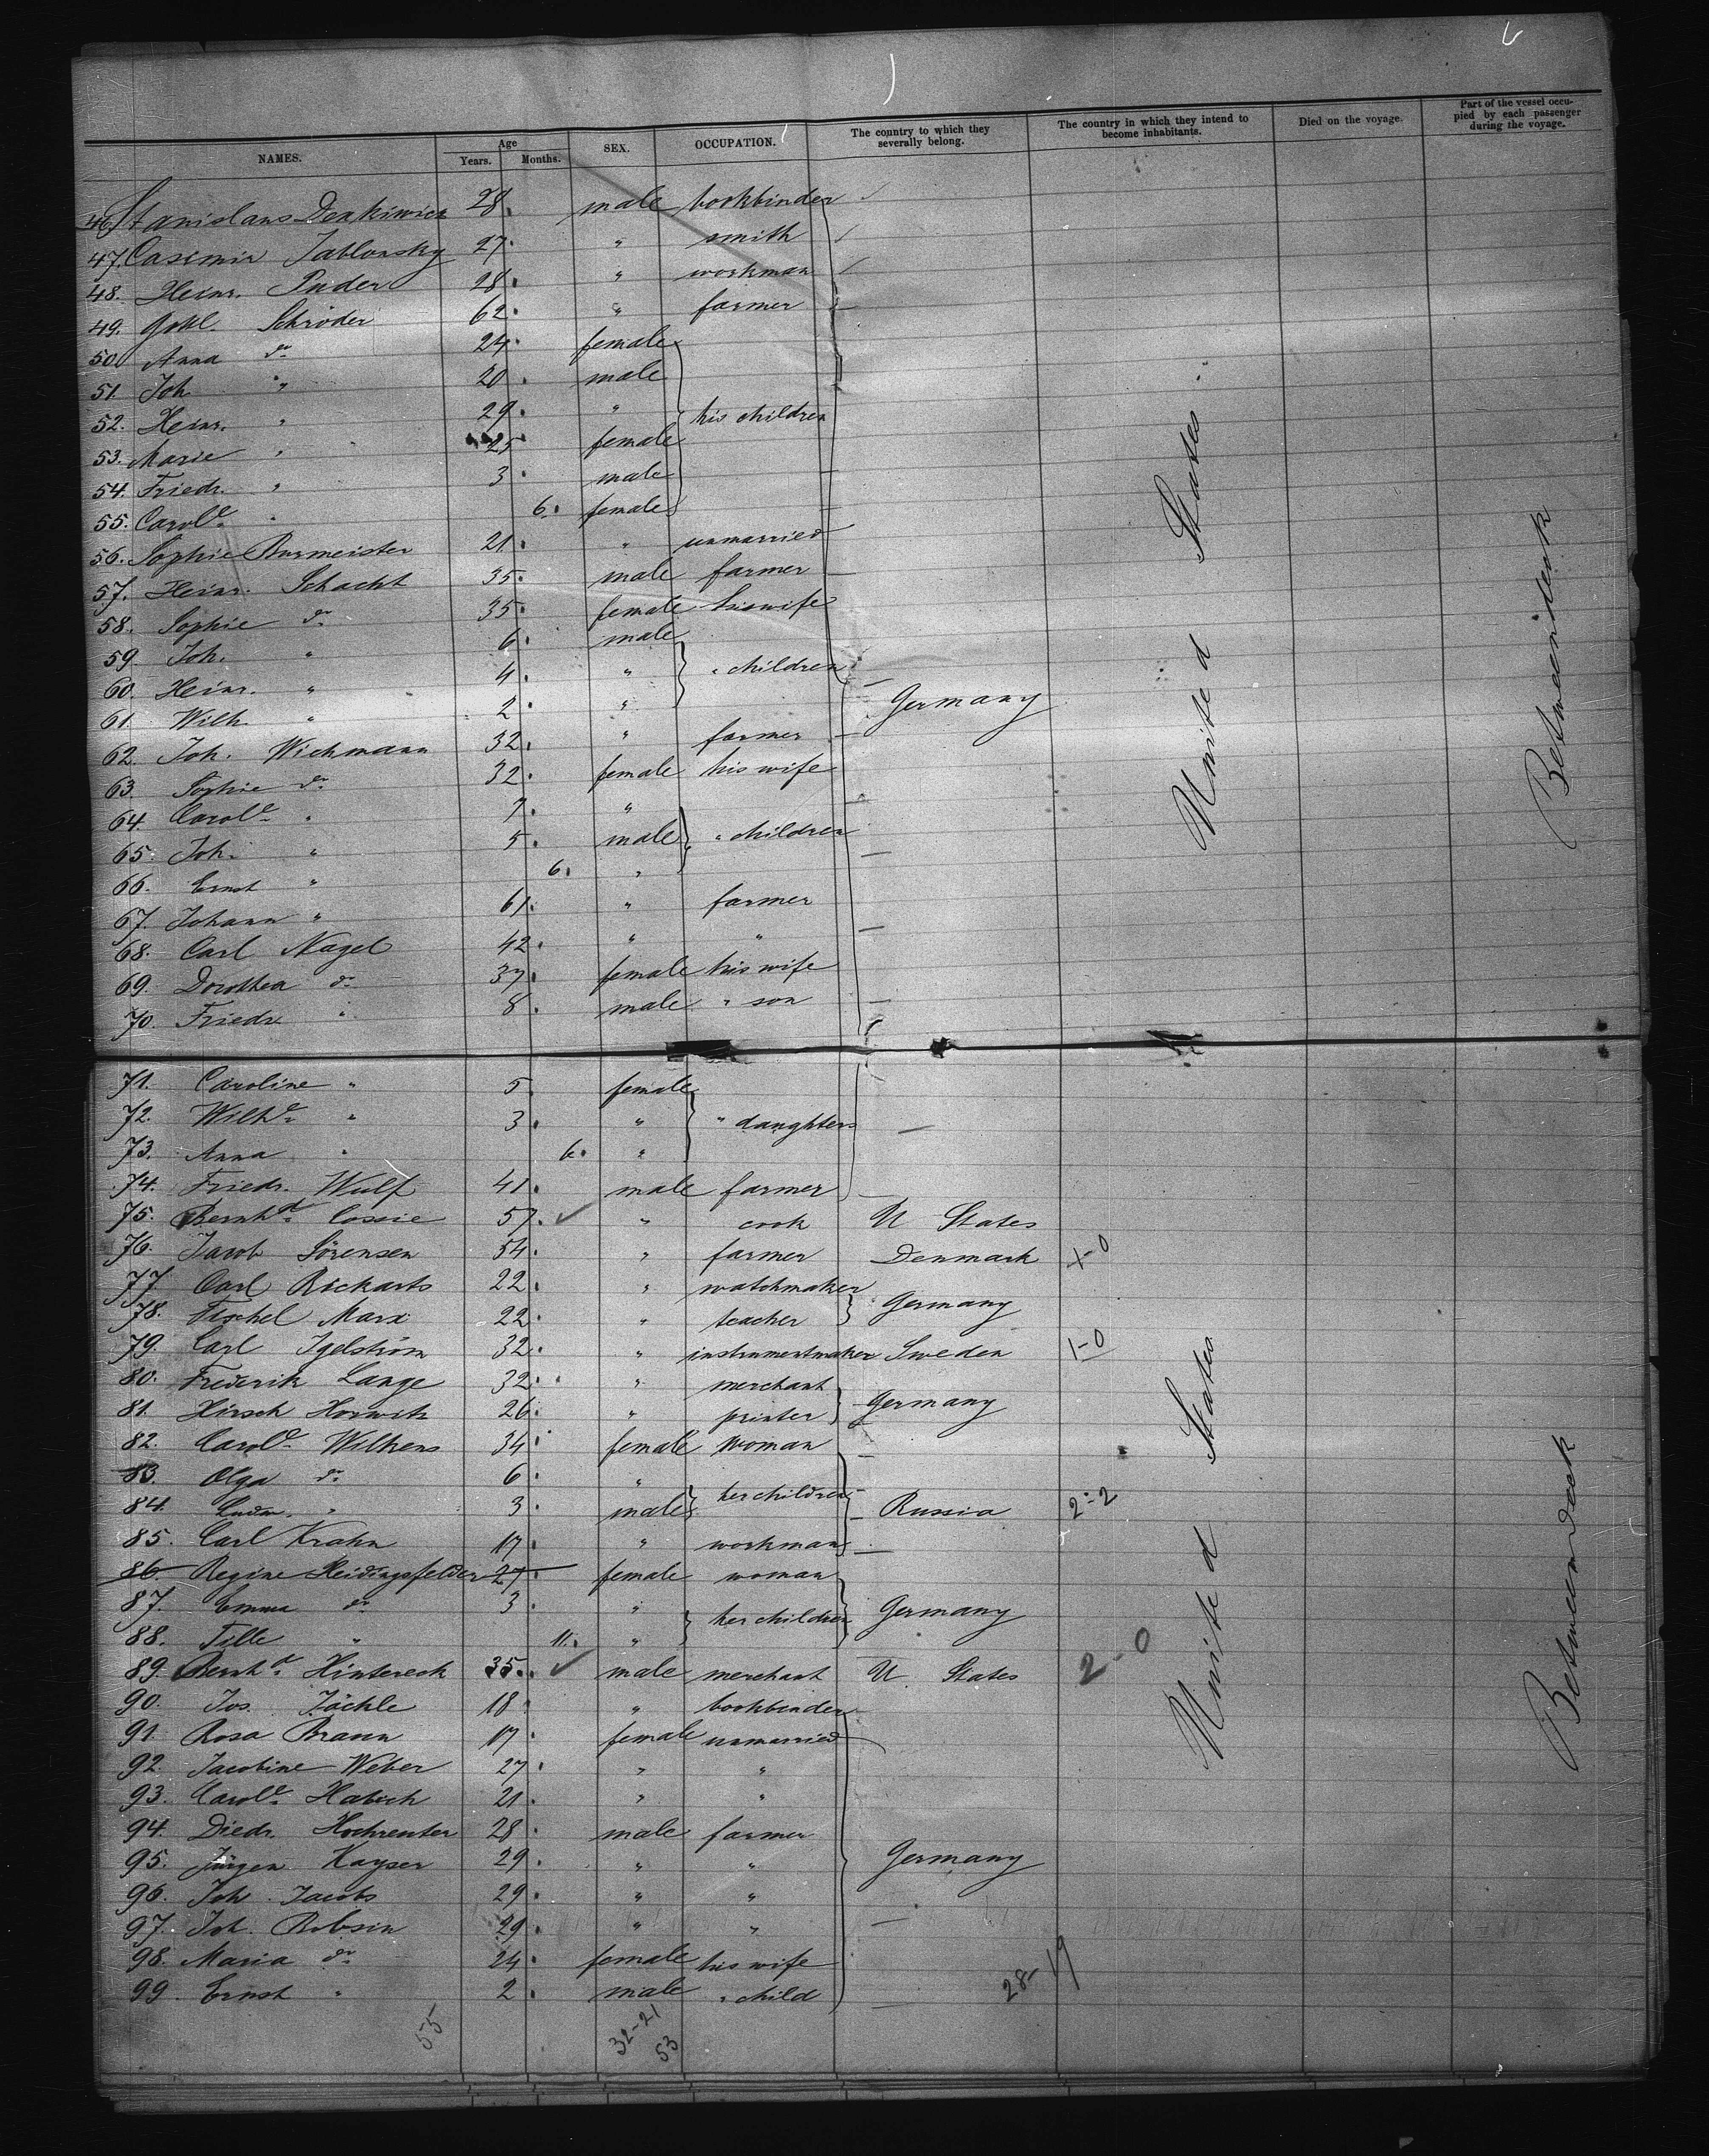 NAMES. Age Years. Months. SEX. OCCUPATION. The country to which they severally belong. The country in which they intend to become inhabitants. Died on the voyage. Part of the vessel occupied by each passenger during the voyage.
46. Stanislaus 28. male bookbinder
47. Casimir Jablonsky 27. " smith
48. Heinr. Puder 28. " workman
49. Schröder 62. " farmer
50. Anna do 24. female
51. Joh. " 20. male
52. Heinr. " 29. " his children
53. Marie " 25 female
54. Friedr. " 3. male
55. Carole. " 6. female
56. Sophie Burmeister 21. " unmarried
57. Heinr. Schacht 35. male farmer
58. Sophie do 35. female his wife
59. Joh. " 6. male
60. Heinr. " 4. " " children
61. Wilh " 2. " Germany
62. Joh. Wichmann 32. " farmer
63. Sophie do 32. female his wife
64. Carole. " 7. "
65. Joh. " 5. male " children
66. Ernst " 6. "
67. Johann " 61. " farmer
68. Carl Nagel 42. " "
69. Dorothea do 37. female his wife
70. Friedr. " 8. male " son
United States.
Betweendeck
71. Caroline " 5 female
72. Wilhe. " 3. " " daughters
73. Anna " 6. "
74. Friedr. Wulf 41. male farmer
75. Bernhd. Cossie 57. " cook U States
76. Jacob Sörensen 54. " farmer Denmark 1-0
77. Carl Rickarts 22. " watchmaker
78. Fischel Marx 22. " teacher Germany
79. Carl Igelström 32. " instrumentmaker Sweden 1-0
80. Frederik Lange 32. " merchant
81. Hirsch Horwitz 26. " printer Germany
82. Carole. Wilkens 34. female woman
83. Olga do 6. "
84. " 3. male her children Russia 2-2
85. Carl Krahn 17. " workman
86. Regine Heidingsfelder 27. female woman
87. Emma do 3. " her children Germany
88. Tille " 11. "
89. Bernhd. Hintereck 35. male merchant U. States 2-0
90. Jos. Jäckle 18 " bookbinder
91. Rosa Braun 17. female unmarried
92. Jacobine Weber 27. " "
93. Carole. Habich 21. " "
94. Diedr. Hochreuter 28. male farmer
95. Jürgen Kayser 29. " " Germany
96. Joh. Jacobs 29. " "
97. Joh. Robsin 29. " "
98. Maria do 24. female his wife
99. Ernst " 2. male " child
28-19
United States
Betweendeck
55 32-21
53